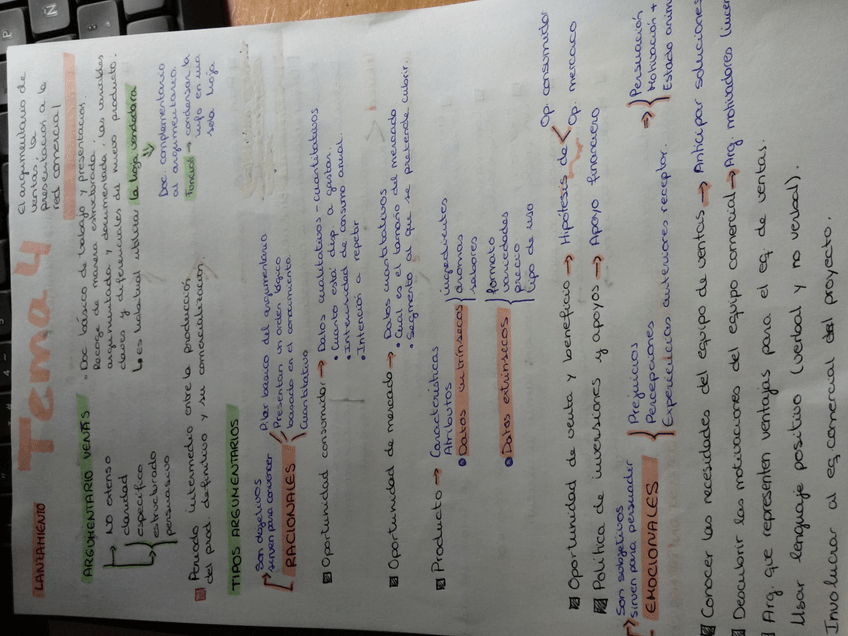 LANZAMIENTO
Tema 4
El argumentario de
ventas, la
presentación a la
red comercial
ARGUMENTARIO VENTAS
NO extenso
claridad
específico
estructurado
persuasivo
• Doc básico de trabajo y presentación.
Recoge de manera estructurada,
argumentada y documentada, las variables
claves y diferenciales del nuevo producto.
↳ es habitual utilizar la hoja vendedora
Doc complementario
al argumentario.
Función → condensar la
info en una
sola hoja
Periodo intermedio entre la producción
del prod. definitivo y su comercialización.
TIPOS ARGUMENTARIOS
Son objetivos
→ sirven para convencer
RACIONALES
Pilar básico del argumentario
Presentan un orden lógico
basado en el conocimiento
Cuantitativo
Oportunidad consumidor → Datos cualitativos - cuantitativos
• Cuanto está disp a gastar.
• Intensidad de consumo anual.
• Intención a repetir
Oportunidad de mercado → Datos cuantitativos
• Cual es el tamaño del mercado
• Segmento al que se pretende cubrir.
Producto → Características
Atributos
• Datos intrínsecos { ingredientes
aromas
sabores
• Datos extrínsecos { formato
variedades
precio
tipo de uso
Oportunidad de venta y beneficio → Hipótesis de < Op consumidor
Op mercado
Política de inversiones y apoyos → Apoyo financiero
Son subjetivos
→ sirven para persuadir
EMOCIONALES
{ Prejuicios
Percepciones
Experiencias anteriores receptor.
→ { Persuasión
Motivación +
Estado aním
Conocer las necesidades del equipo de ventas → Anticipar soluciones
Descubrir las motivaciones del equipo comercial → Arg. motivadores (incen
Arg. que representen ventajas para el eq. de ventas.
Usar lenguaje positivo (verbal y no verbal).
Involucrar al eq comercial del proyecto.